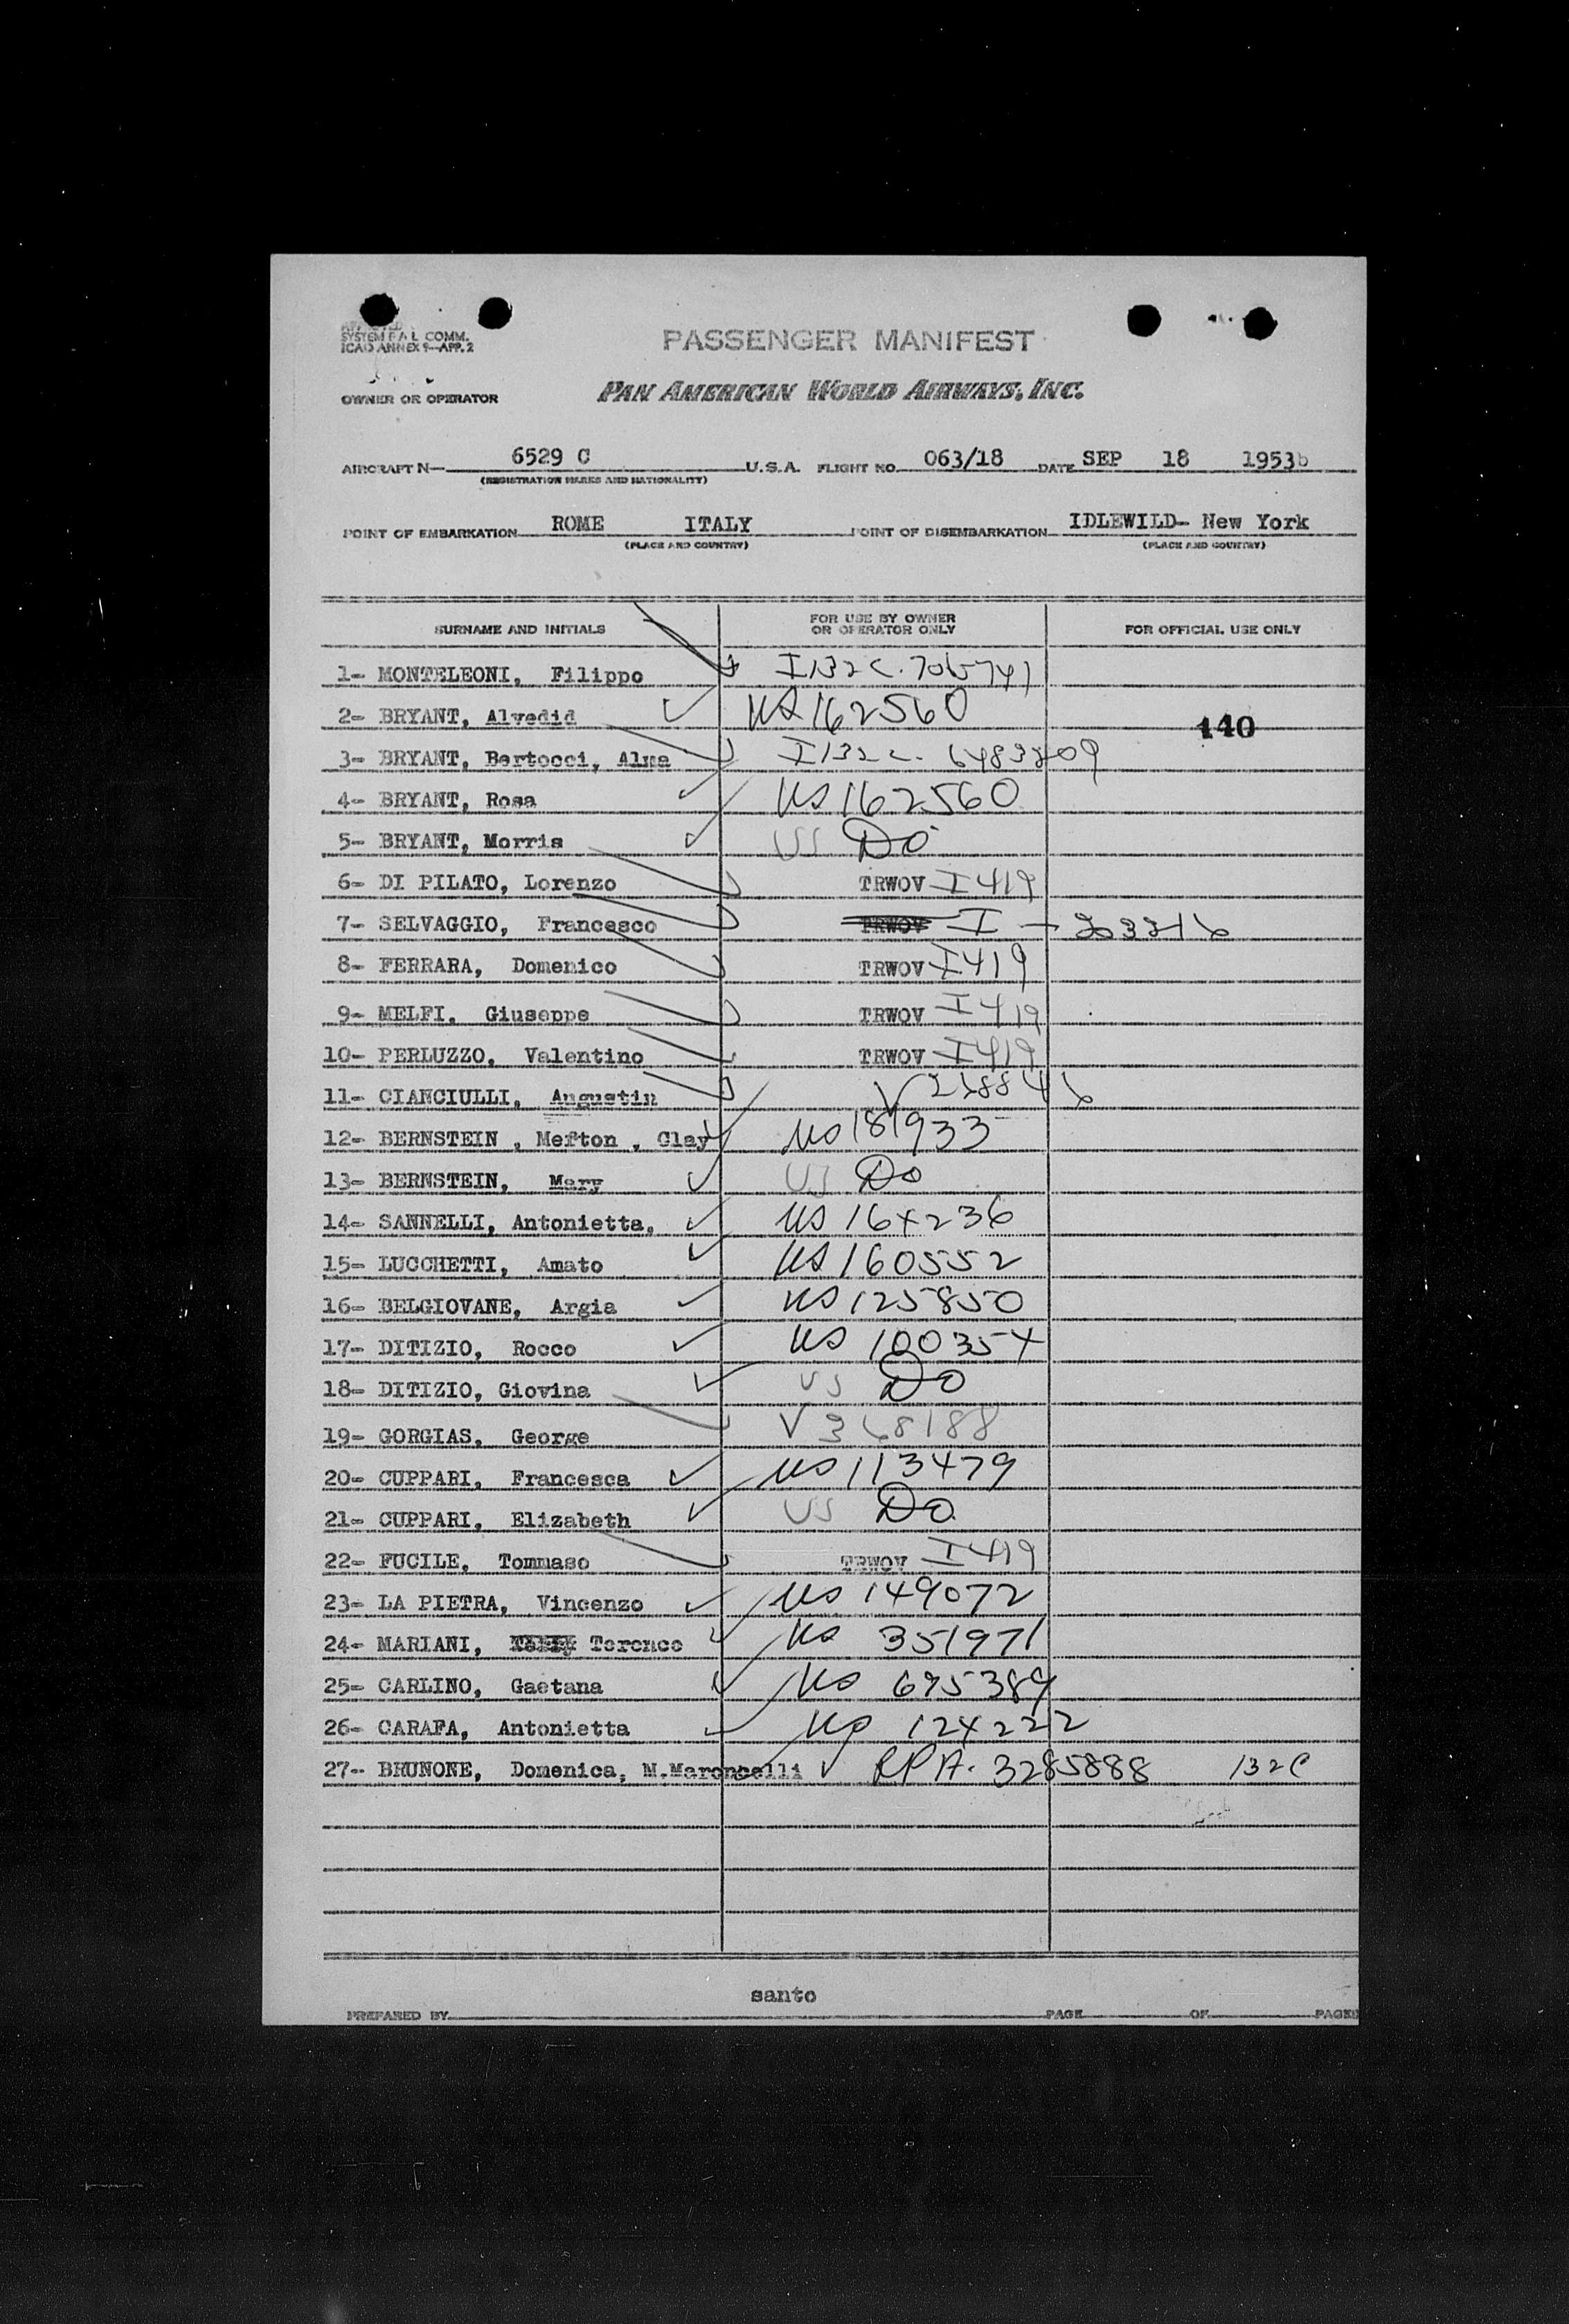 SYSTEM F A L COMM.
ICAO ANNEX 9-APP. 2
PASSENGER MANIFEST
OWNER OR OPERATOR PAN AMERICAN WORLD AIRWAYS, INC.
AIRCRAFT N— 6529 C U.S.A. FLIGHT NO. 063/18 DATE SEP 18 1953
(REGISTRATION MARKS AND NATIONALITY)
POINT OF EMBARKATION ROME ITALY POINT OF DISEMBARKATION IDLEWILD- New York
(PLACE AND COUNTRY) (PLACE AND COUNTRY)
SURNAME AND INITIALS FOR USE BY OWNER OR OPERATOR ONLY FOR OFFICIAL USE ONLY
1- MONTELEONI, Filippo I132C.
2- BRYANT, Alvedid US 162560
140
3- BRYANT, Bertocci, Alma I132C.
4- BRYANT, Rosa US 162560
5- BRYANT, Morris US Do
6- DI PILATO, Lorenzo TRWOV I419
7- SELVAGGIO, Francesco TRWOV I -
8- FERRARA, Domenico TRWOV I419
9- MELFI, Giuseppe TRWOV I419
10- PERLUZZO, Valentino TRWOV I419
11- CIANCIULLI, Augustin
12- BERNSTEIN , Mefton , Clay US 181933
13- BERNSTEIN, Mary US Do
14- SANNELLI, Antonietta, US 164236
15- LUCCHETTI, Amato US 160552
16- BELGIOVANE, Argia US 125850
17- DITIZIO, Rocco US 100354
18- DITIZIO, Giovina US Do
19- GORGIAS, George V 368188
20- CUPPARI, Francesca US 113479
21- CUPPARI, Elizabeth US Do
22- FUCILE, Tommaso TRWOV I419
23- LA PIETRA, Vincenzo US 149072
24- MARIANI, Terence US 351971
25- CARLINO, Gaetana US 695389
26- CARAFA, Antonietta US 124222
27- BRUNONE, Domenica, M.Maroncelli RPA. 3285888 132C
santo
PREPARED BY PAGE OF PAGES